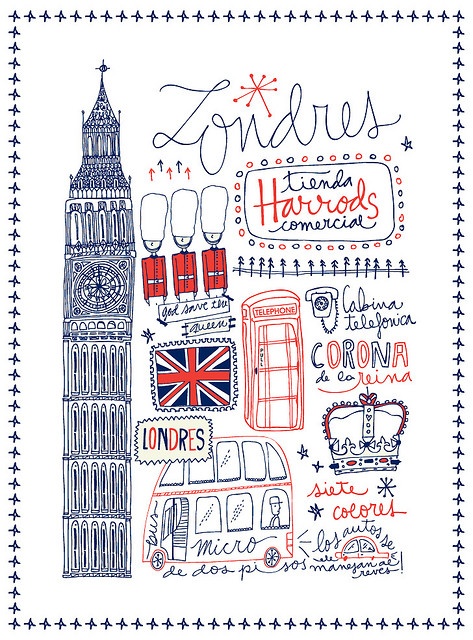 Londres
tienda
Harrods
comercial
god save the
queen
TELEPHONE
PULL
Cabina
telefonica
CORONA
de la reina
LONDRES
siete
colores
bus
micro
de dos pisos
los autos se
manejan al
revés!